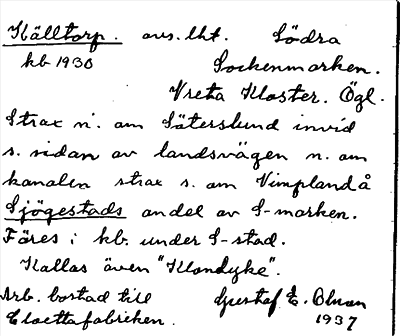 Källtorp. avs. lht. Södra
kb 1930 Sockenmarken.
Vreta Kloster. Ögl.
Strax n. om Säterslund invid
s. sidan av landsvägen n. om
kanalen strax s. om Vimplandå
Sjögestads andel av S-marken.
Föres i kb. under S-stad.
Kallas även "Klondyke".
Arb. bostad till Gustaf E. Olman
Cloettafabriken. 1937